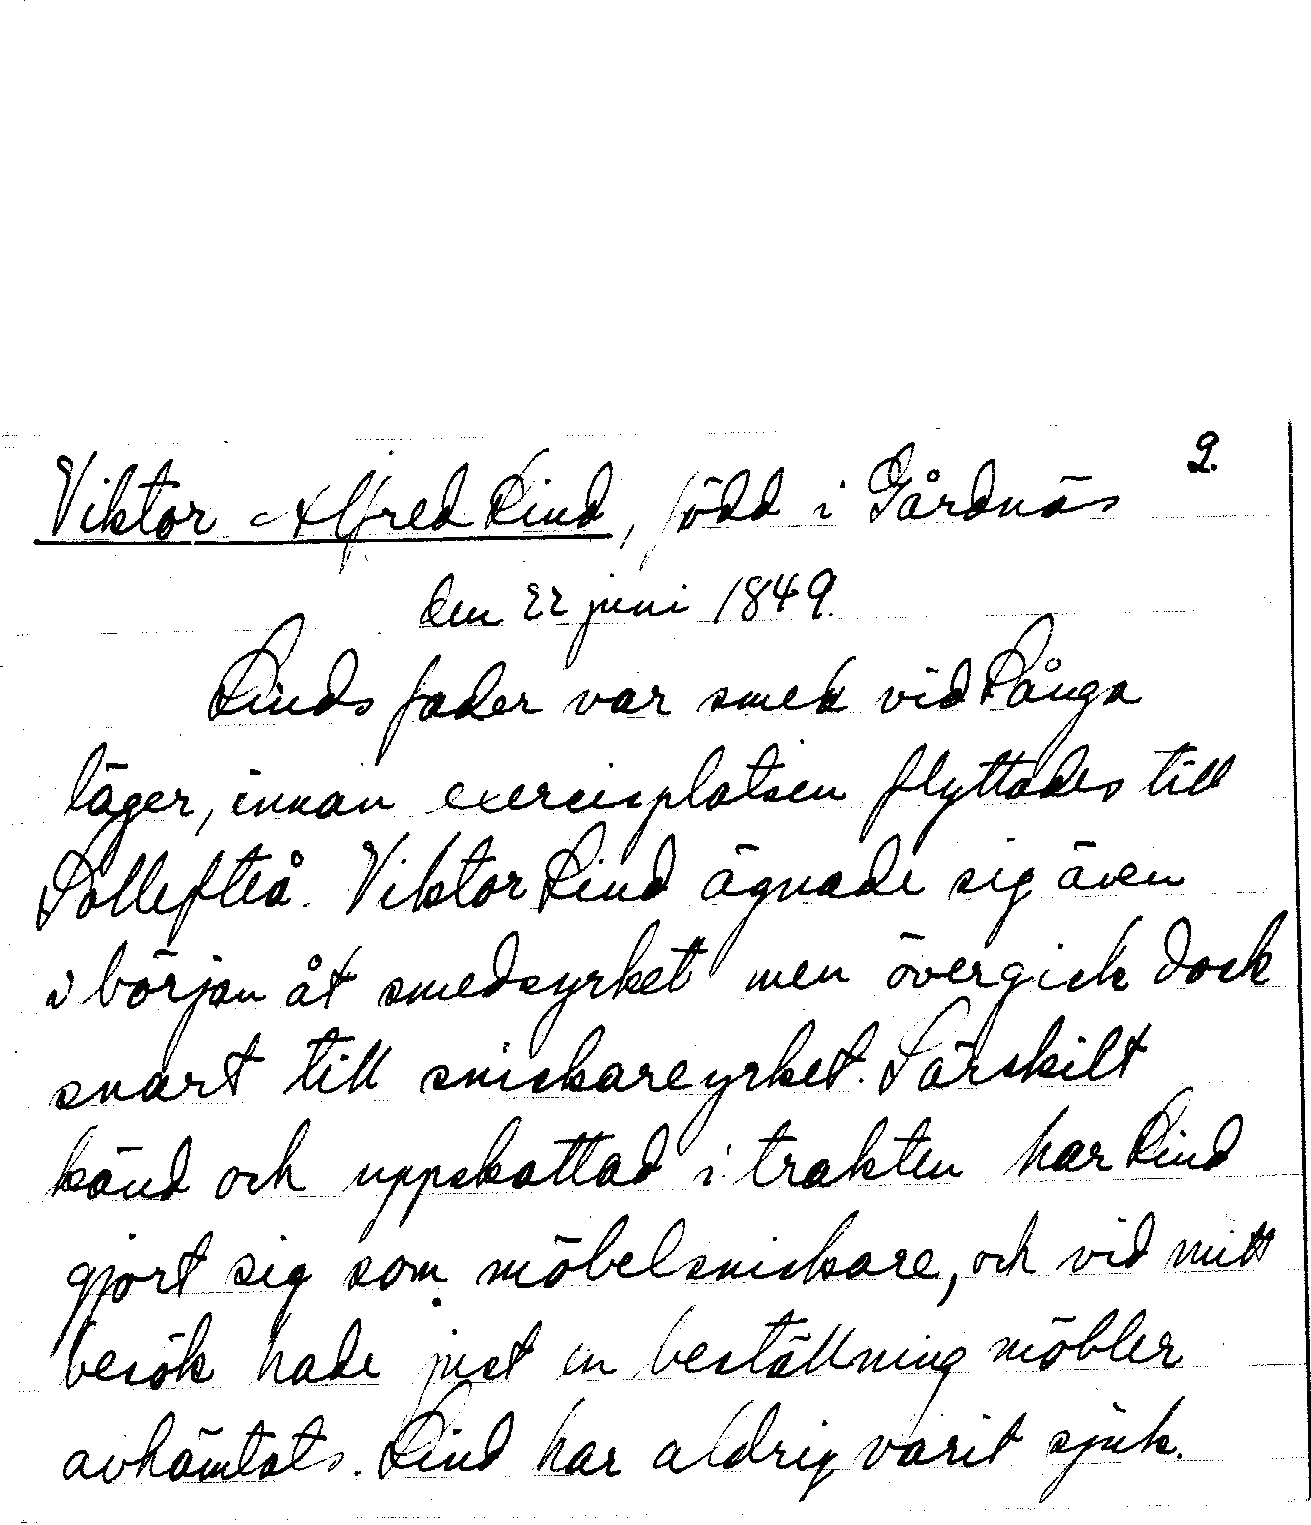 2.
Viktor Alfred Lind, född i Gårdnäs
den 22 juni 1849.
Linds fader var smed vid Sånga
läger, innan exercisplatsen flyttades till
Sollefteå. Viktor Lind ägnade sig även
i början åt smedsyrket men övergick dock
snart till snickareyrket. Särskilt
känd och uppskattad i trakten har Lind
gjort sig som möbelsnickare, och vid mitt
besök hade just en beställning möbler
avhämtats. Lind har aldrig varit sjuk.